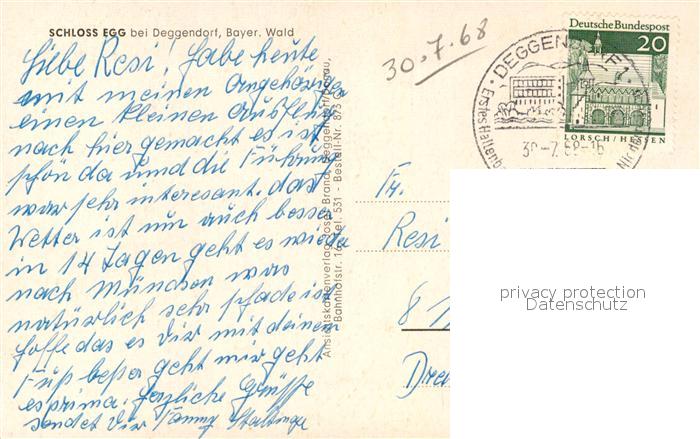 SCHLOSS EGG bei Deggendorf, Bayer. Wald
Liebe Resi! Habe heute
mit meinen Angehörigen
einen kleinen Ausflug
nach hier gemacht es ist
schön da und die Führung
war sehr interesant. das
Wetter ist nun auch besser
in 14 Tagen geht es wieder
nach München was
natürlich sehr schade ist
hoffe das es dir mit deinem
Fuß beßer geht mir geht
es prima. Herzliche Grüsse
sendet dir
Ansichtskartenverlag Josef Brand, Deggendorf/Donau,
Bahnhofstr. Tel. 531 - Bestell-Nr. 873
30.7.68
DEGGENDORF 1
Erstes Hallenb
30.-7.68-16
Nieder
Deutsche Bundespost
20
LORSCH/HESSEN
Fr.
Resi
8
privacy protection
Datenschutz